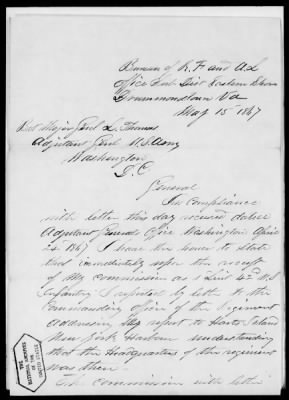 Bureau of R. F. and A. L
Office Sub Dist Eastern Shore
Drummondtown Va
May 15 1867
Bvt Major Genl L. Thomas
Adjutant Genl U.S. Army
Washington
D. C
General
In compliance
with letter this day received dated
Adjutant Generals Office Washington April
24 1867 I have the honor to state
that immediately upon the receipt
of my commission as 1 Lieut 42nd U.S
Infantry I reported by letter to the
Commanding officer of the Regiment
Addressing my report to Harts Island
New York Harbour understanding
that the Headquarters of the regiment
was there.
The commission with letter
THE
NATIONAL ARCHIVES
OF THE
UNITED STATES